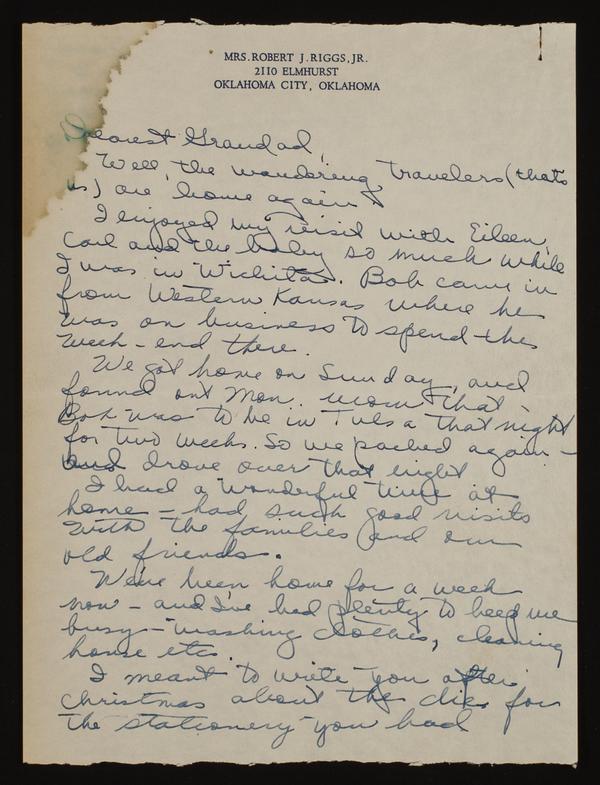 MRS. ROBERT J. RIGGS, JR.
2110 ELMHURST
OKLAHOMA CITY, OKLAHOMA
Dearest Grandad,
Well, the wandering travelers (thats
us) are home again.
I enjoyed my visit with Eileen,
Carl and the baby so much while
I was in Wichita. Bob came in
from Western Kansas where he
was on business to spend the
week-end there.
We got home on Sunday, and
found out Mon. morn that
Bob was to be in Tulsa that night
for two weeks. So we packed again –
and drove over that night
I had a wonderful time at
home – had such good visits
with the families and our
old friends.
We've been home for a week
now – and I've had plenty to keep me
busy – washing clothes, cleaning
house etc.
I meant to write you after
Christmas about the die for
the stationery you had